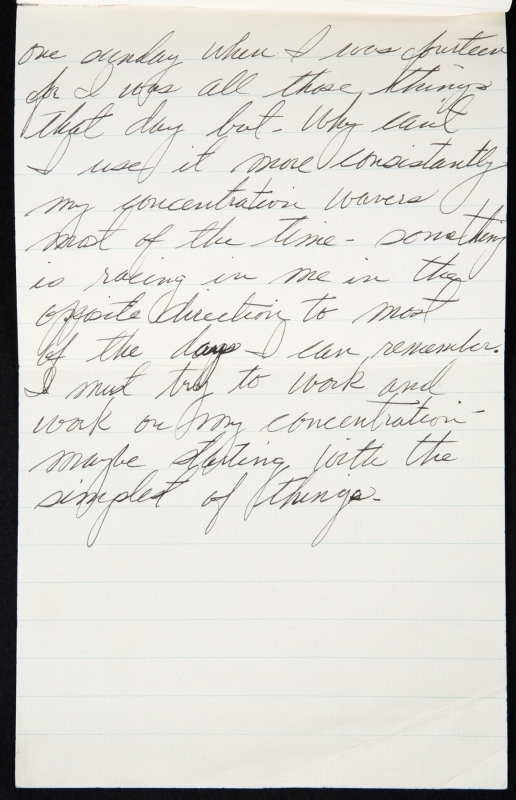 one sunday when I was fourteen
for I was all those things
that day but - Why can't
I use it more consistantly
my concentration wavers
most of the time - something
is racing in me in the
opposite direction to most
of the days I can remember.
I must try to work and
work on my concentration -
maybe starting with the
simplest of things.